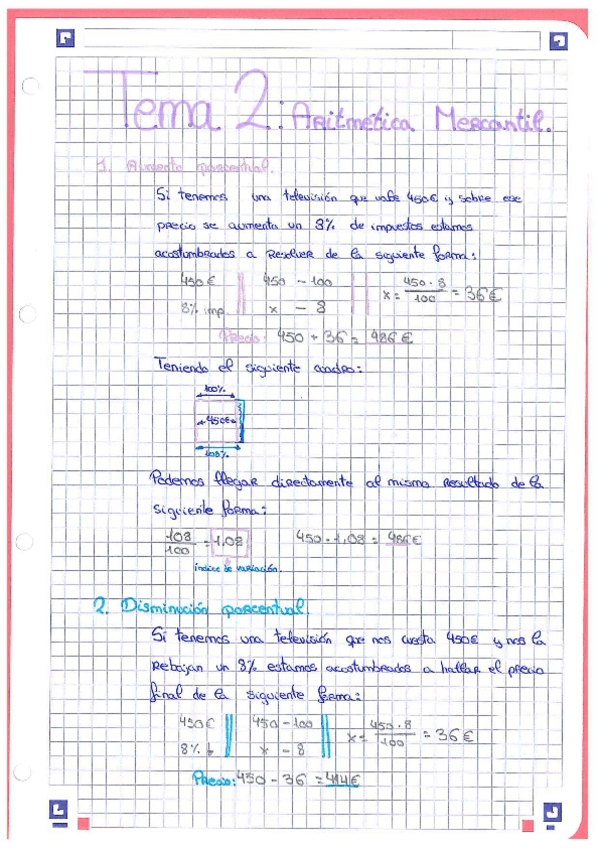 Tema 2: Aritmética Mercantil.
1. Aumento porcentual.
Si tenemos una televisión que vale 450€ y sobre ese
precio se aumenta un 8% de impuestos estamos
acostumbrados a resolver de la siguiente forma:
450€ 450 - 100 x = 450 · 8 / 100 = 36€
8% imp. x - 8
Precio: 450 + 36 = 486€
Teniendo el siguiente cuadro:
100%
450€
108%
Podemos llegar directamente al mismo resultado de la
siguiente forma:
108 / 100 = 1,08 450 · 1,08 = 486€
índice de variación.
2. Disminución porcentual.
Si tenemos una televisión que nos cuesta 450€ y nos la
rebajan un 8% estamos acostumbrados a hallar el precio
final de la siguiente forma:
450€ 450 - 100 x = 450 · 8 / 100 = 36€
8% ↓ x - 8
Precio: 450 - 36 = 414€